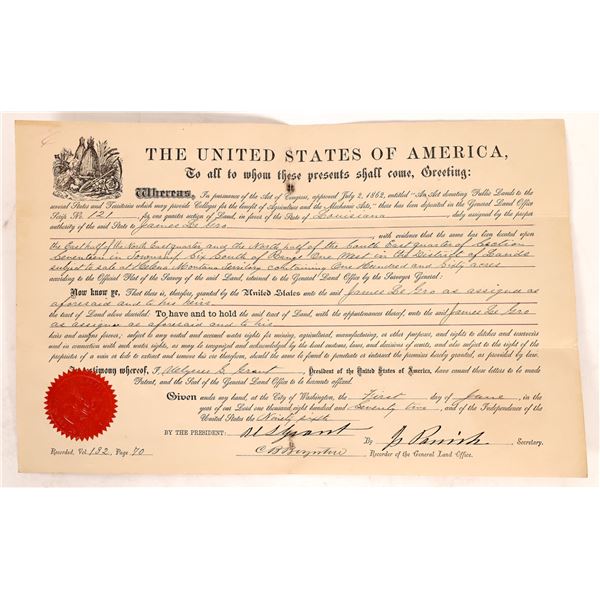 THE UNITED STATES OF AMERICA,
To all to whom these presents shall come, Greeting:
Whereas, In pursuance of the Act of Congress, approved July 2, 1862, entitled "An Act donating Public Lands to the
several States and Territories which may provide Colleges for the benefit of Agriculture and the Mechanic Arts," there has been deposited in the General Land Office
Scrip No. 121, for one quarter section of Land, in favor of the State of Louisiana duly assigned by the proper
authority of the said State to James Le Gro
, with evidence that the same has been located upon
the East half of the North East quarter and the North half of the South East quarter of Section
Seventeen in Township Six South of Range One West in the District of Lands
subject to sale at Helena Montana Territory containing One Hundred and Sixty acres
according to the Official Plat of the Survey of the said Land, returned to the General Land Office by the Surveyor General:
Now know ye, That there is, therefore, granted by the United States unto the said James Le Gro as assignee as
aforesaid and to his heirs
the tract of Land above described: To have and to hold the said tract of Land, with the appurtenances thereof, unto the said James Le Gro
as assignee as aforesaid and to his
heirs and assigns forever; subject to any vested and accrued water rights for mining, agricultural, manufacturing, or other purposes, and rights to ditches and reservoirs
used in connection with such water rights, as may be recognized and acknowledged by the local customs, laws, and decisions of courts, and also subject to the right of the
proprietor of a vein or lode to extract and remove his ore therefrom, should the same be found to penetrate or intersect the premises hereby granted, as provided by law.
In testimony whereof, I, Ulysses S. Grant, President of the United States of America, have caused these letters to be made
Patent, and the Seal of the General Land Office to be hereunto affixed.
Given under my hand, at the City of Washington, the First day of June, in the
year of our Lord one thousand eight hundred and Seventy two, and of the Independence of the
United States the Ninety sixth
BY THE PRESIDENT: U S Grant
By J. Parrish, Secretary.
Recorded, Vol. 132, Page 70
C B Boynton Recorder of the General Land Office.